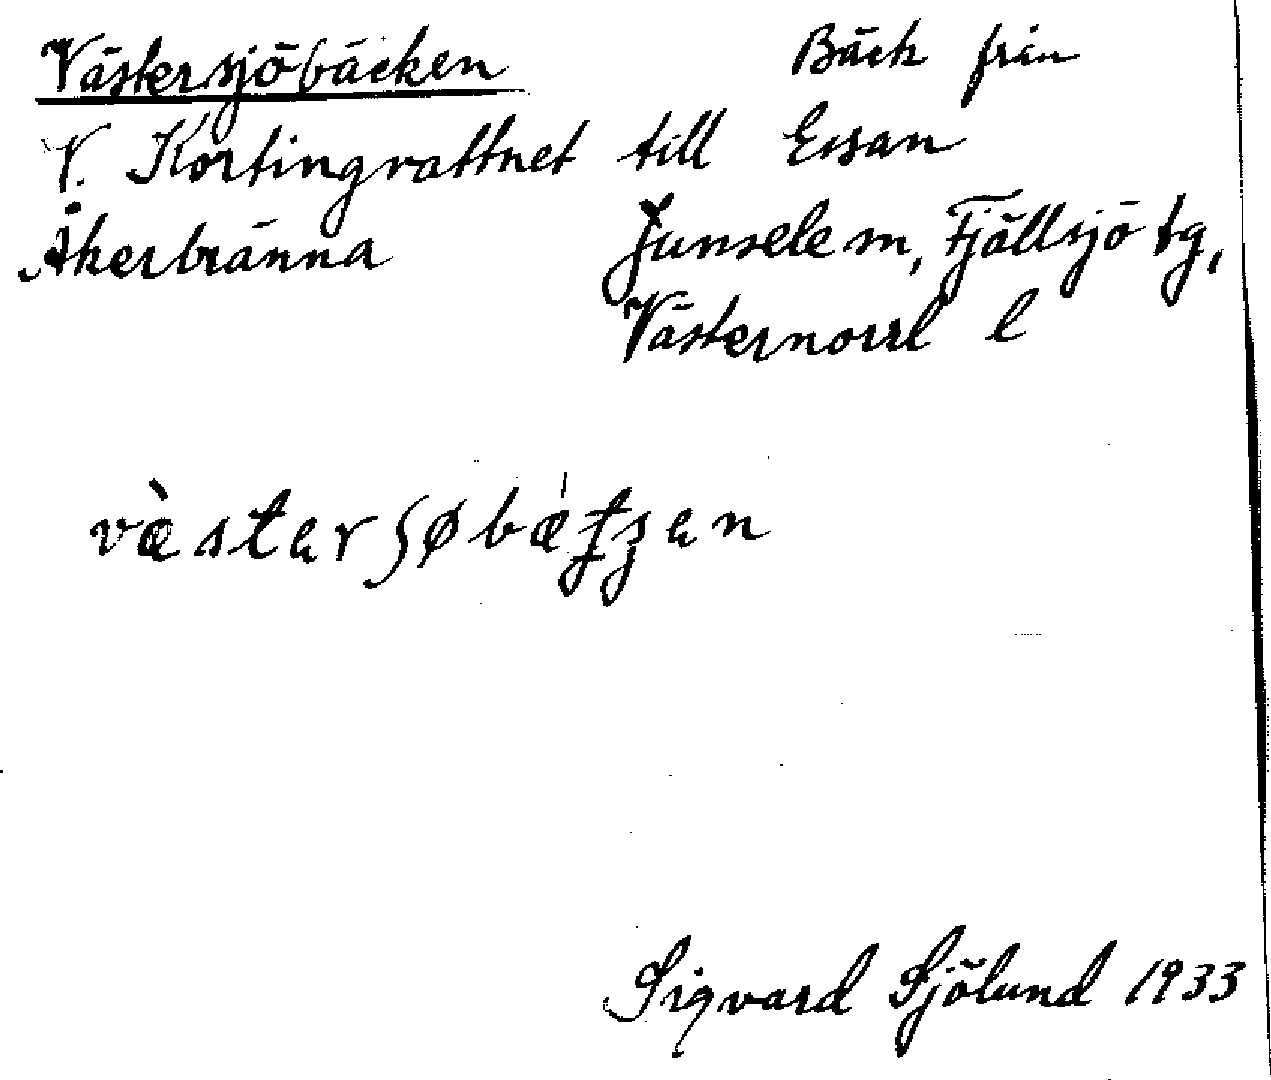 Västersjöbäcken Bäck från
V. Kortingvattnet till Ersan
Åkerbränna Junsele sn, Fjällsjö tg,
Västernorrl l
væ̀stərʃøbæ̍ʈʂən
Sigvard Sjölund 1933